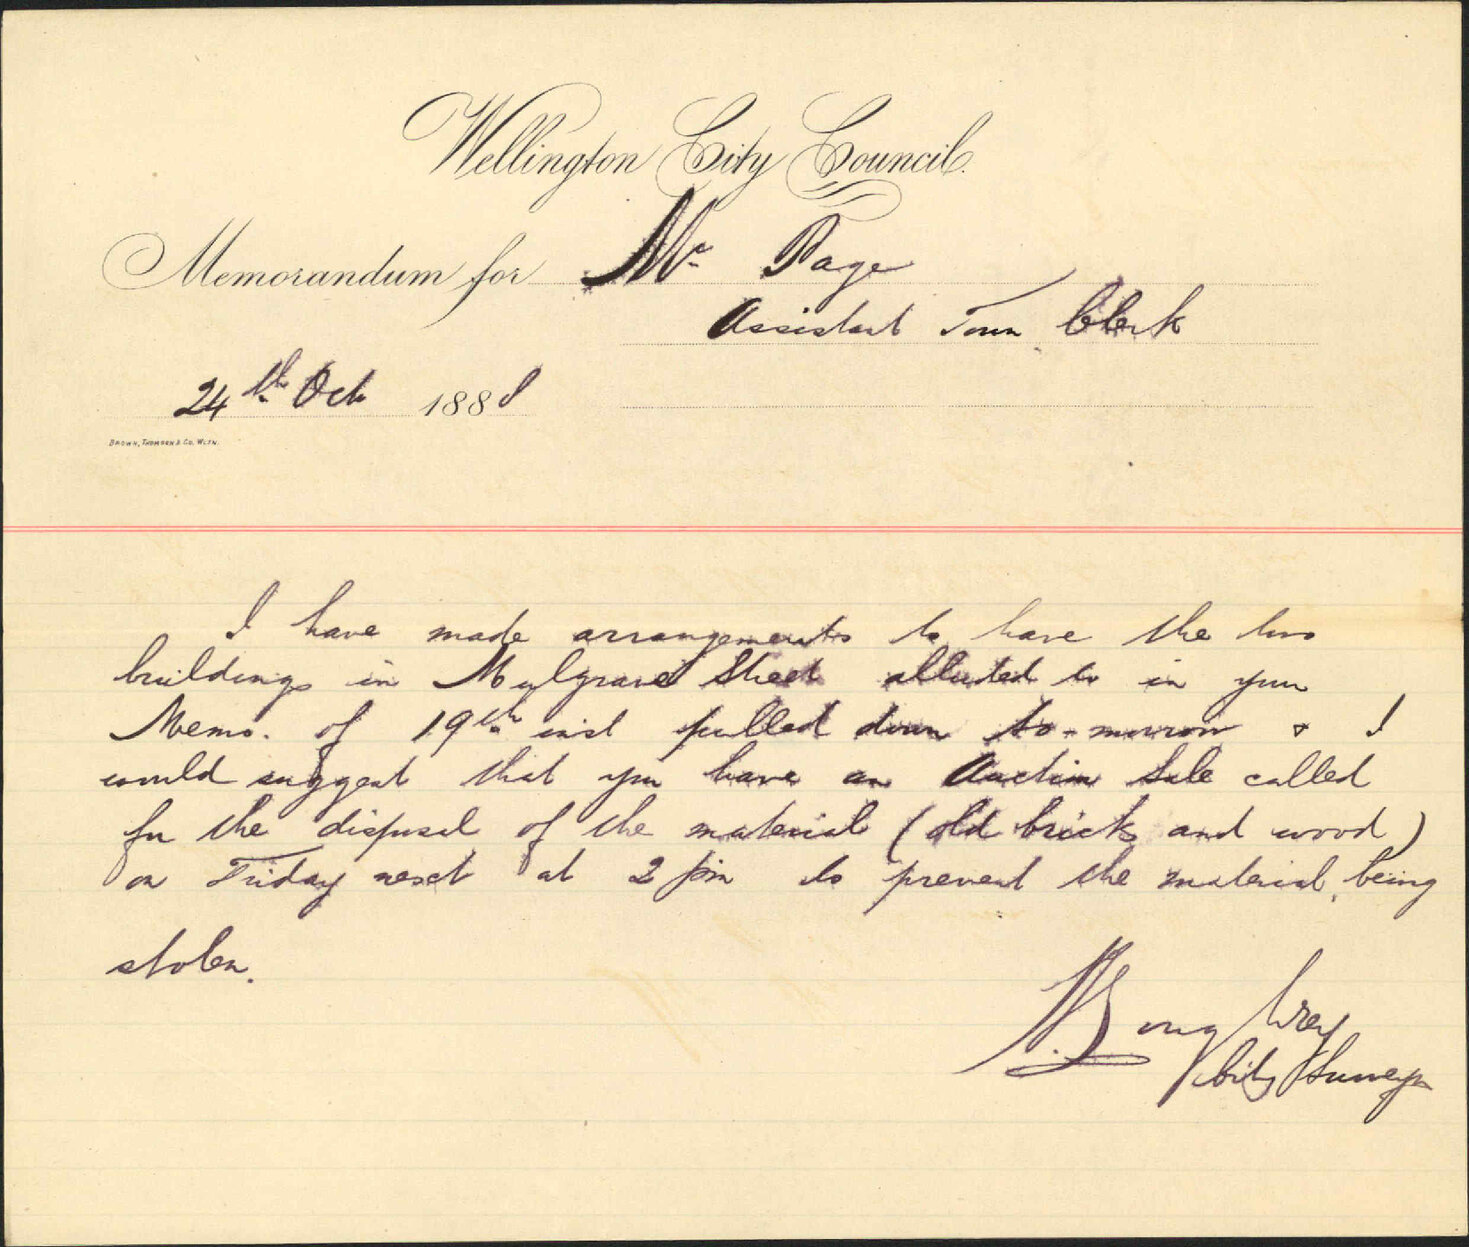 Wellington City Council.
Memorandum for Mr. Page
Assistant Town Clerk
24th Oct 1888
BROWN, THOMSON & CO. WGTN.
I have made arrangements to have the two
buildings in Mulgrave Street alluded to in your
Memo. of 19th inst pulled down to-morrow & I
would suggest that you have an Auction Sale called
for the disposal of the material (old bricks and wood)
on Friday next at 2 pm to prevent the material being
stolen.
City Surveyor